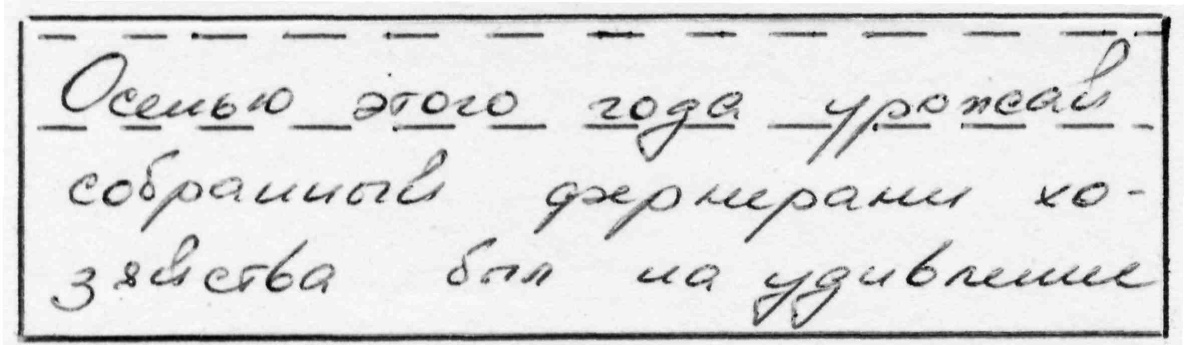 Осенью этого года урожай
собранный фермерами хо-
зяйства был на удивление